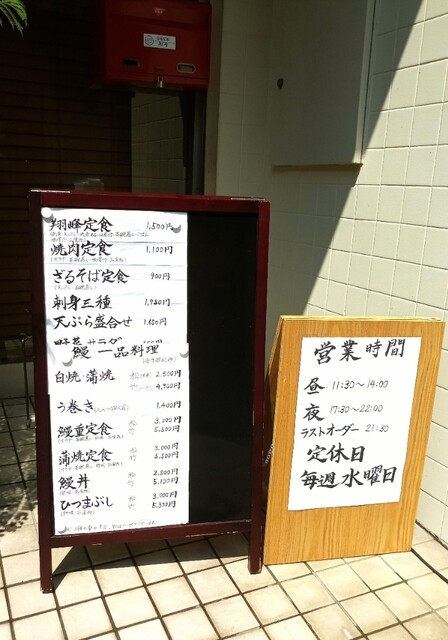 翔峰定食 1,500円
焼肉定食 1,100円
ざるそば定食 900円
刺身三種
天ぷら盛合せ
野菜サラダ
鰻 一品料理
白焼・蒲焼 松 2,500円
竹 4,900円
う巻き 1,400円
鰻重定食 松 3,000円
竹 5,500円
蒲焼定食 松 3,000円
竹 5,500円
鰻丼 松 2,800円
竹 5,100円
ひつまぶし 松 3,000円
竹 5,300円
営業時間
昼 11:30~14:00
夜 17:30~22:00
ラストオーダー 21:30
定休日
毎週水曜日